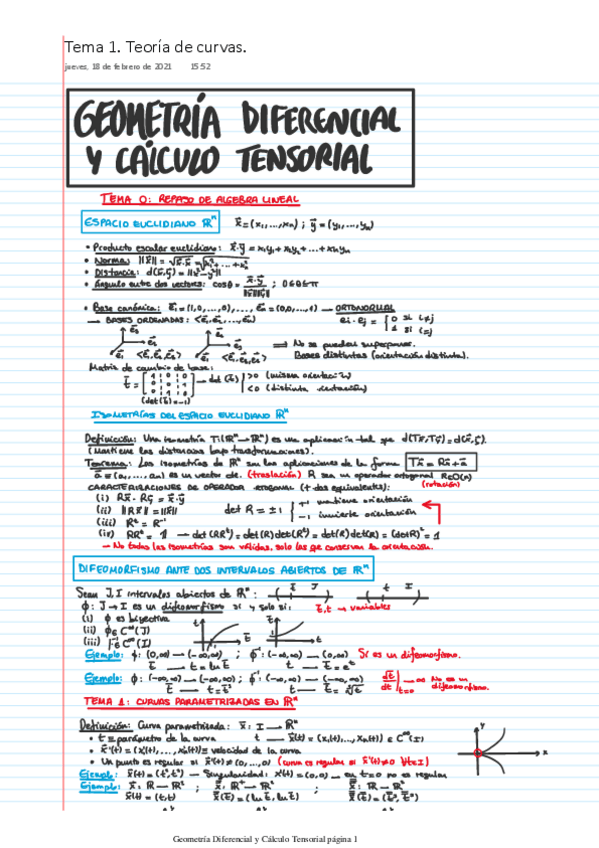 Tema 1. Teoría de curvas.
jueves, 18 de febrero de 2021 15:52
GEOMETRÍA DIFERENCIAL
Y CÁLCULO TENSORIAL
TEMA 0: REPASO DE ALGEBRA LINEAL
ESPACIO EUCLIDIANO ℝⁿ x⃗=(x₁,...,xₙ) ; y⃗=(y₁,...,yₙ)
• Producto escalar euclidiano: x⃗·y⃗ = x₁y₁+x₂y₂+...+xₙyₙ
• Norma: ||x⃗|| = √x⃗·x⃗ = √x₁²+...+xₙ²
• Distancia: d(x⃗,y⃗) = ||x⃗-y⃗||
• Ángulo entre dos vectores: cosθ = x⃗·y⃗ / ||x⃗||||y⃗|| ; 0≤θ≤π
• Base canónica: e⃗₁=(1,0,...,0),..., e⃗ₙ=(0,0,...,1) → ORTONORMAL
→ BASES ORDENADAS: <e⃗₁,e⃗₂,...,e⃗ₙ> eᵢ·eⱼ = {0 si i≠j
1 si i=j
⇒ No se pueden superponer.
Bases distintas (orientación distinta).
Matriz de cambio de base:
→ det(t⃗) >0 (misma orientación)
<0 (distinta orientación)
(det(t⃗)=-1)
ISOMETRÍAS DEL ESPACIO EUCLIDIANO ℝⁿ
Definición: Una isometría T:(ℝⁿ→ℝⁿ) es una aplicación tal que d(Tx⃗,Ty⃗)=d(x⃗,y⃗).
(Mantiene las distancias bajo transformaciones).
Teorema: Las isometrías de ℝⁿ son las aplicaciones de la forma Tx⃗ = Rx⃗+a⃗
a⃗=(a₁,...,aₙ) es un vector de. (traslación) R sea un operador ortogonal R∈O(n)
(rotación)
CARACTERIZACIONES DE OPERADOR ORTOGONAL (+ dos equivalentes):
(i) Rx⃗·Ry⃗ = x⃗·y⃗
(ii) ||Rx⃗|| = ||x⃗|| det R = ±1 {+1 mantiene orientación
-1 invierte orientación
(iii) Rᵗ = R⁻¹
(iv) RRᵗ = 1 → det(RRᵗ) = det(R)det(Rᵗ) = det(R)det(R) = (detR)² = 1
→ No todas las isometrías son válidas, solo las que conservan la orientación.
DIFEOMORFISMO ANTE DOS INTERVALOS ABIERTOS DE ℝⁿ
Sean J,I intervalos abiertos de ℝⁿ:
ϕ: J → I es un difeomorfismo si y solo si: t̄,t → variables
(i) ϕ es biyectiva
(ii) ϕ∈C^∞(J)
(iii) ϕ⁻¹∈C^∞(I)
Ejemplo: ϕ: (0,∞) → (-∞,∞) ; ϕ⁻¹: (-∞,∞) → (0,∞) Sí es un difeomorfismo.
t̄ → t = ln t̄ t → t̄ = eᵗ
Ejemplo: ϕ: (-∞,∞) → (-∞,∞) ; ϕ⁻¹: (-∞,∞) → (-∞,∞) No es un
t̄ → t = t̄³ t → t̄ = ∛t difeomorfismo.
TEMA 1: CURVAS PARAMETRIZADAS EN ℝⁿ
Definición: Curva parametrizada: x⃗: I → ℝⁿ
• t ≡ parámetro de la curva t → x⃗(t) = (x₁(t),...,xₙ(t)) ∈ C^∞(I)
• x⃗'(t) = (x₁'(t),...,xₙ'(t)) ≡ velocidad de la curva
• Un punto es regular si x⃗'(t)≠(0,...,0) (curva es regular si x⃗'(t)≠0 ∀t∈I)
Ejemplo: x⃗(t) = (t²,t³) → Singularidad: x'(t) = (0,0) → en t=0 no es regular
Ejemplo: x⃗: ℝ → ℝ² x⃗: ℝ⁺ → ℝ² x⃗: ℝ → ℝ²
x⃗(t) = (t,t) x⃗(t̄) = (ln t̄, ln t̄) x⃗(t̄) = (t̄³, t̄³)
Geometría Diferencial y Cálculo Tensorial página 1